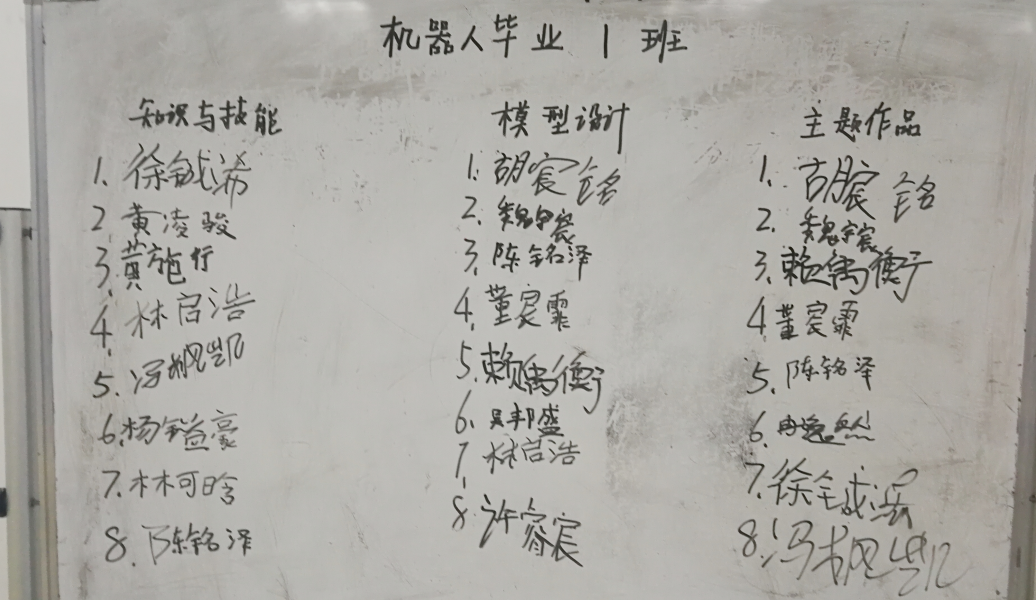 机器人毕业1班
知识与技能
1. 徐钺浠
2. 黄凌骏
3. 黄施行
4. 林启浩
5. 冯枫凯
6. 杨镒豪
7. 林可晗
8. 陈铭泽
模型设计
1. 胡宸铭
2. 魏宇宸
3. 陈铭泽
4. 董宸霏
5. 赖禹衡
6. 吴邦盛
7. 林启浩
8. 许睿宸
主题作品
1. 胡宸铭
2. 魏宇宸
3. 赖禹衡
4. 董宸霏
5. 陈铭泽
6. 冉逸然
7. 徐
8. 冯枫凯